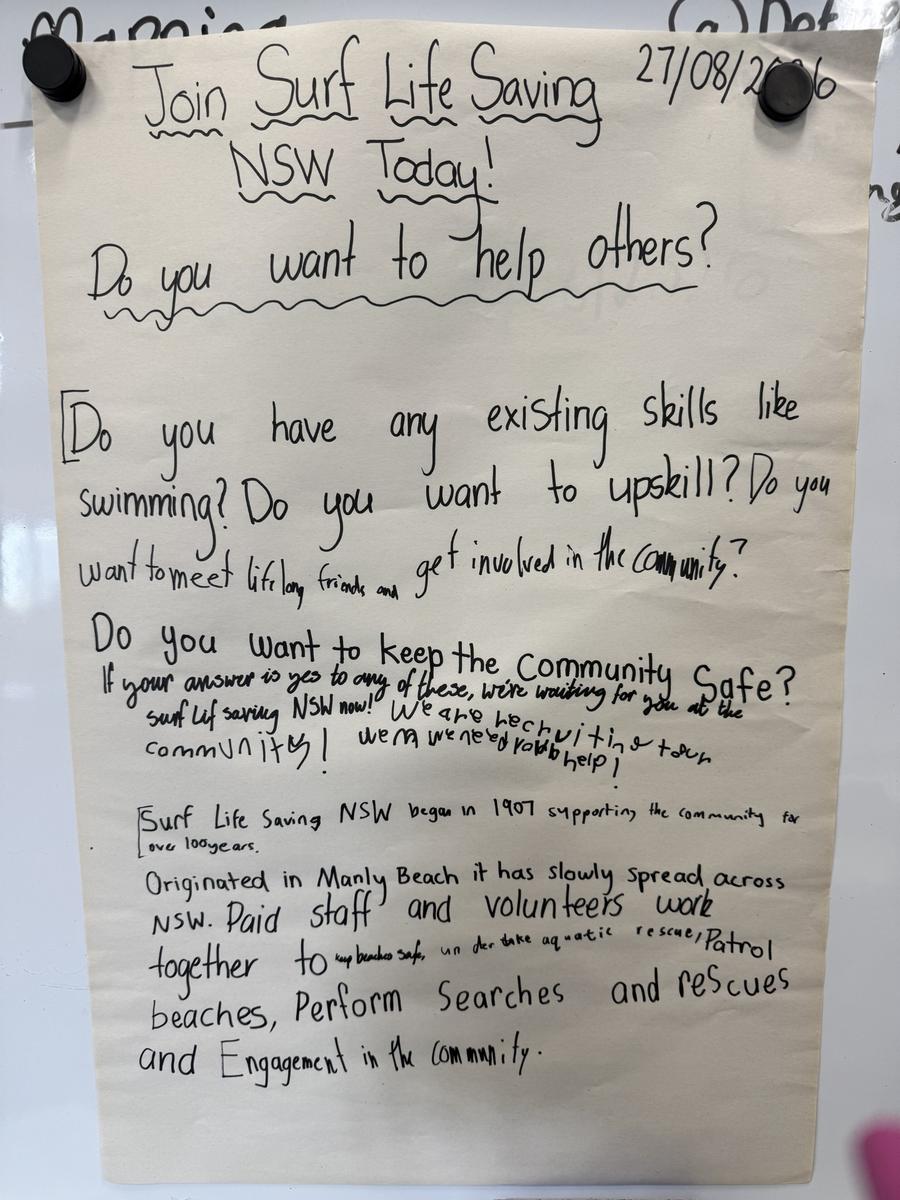 Mapping
Join Surf Life Saving 27/08/2
NSW Today!
Do you want to help others?
[Do you have any existing skills like
swimming? Do you want to upskill? Do you
want to meet life long friends and get involved in the community?
Do you want to keep the Community Safe?
If your answer is yes to any of these, we're waiting for you at the
surf Lif saving NSW now! We are recruiting to our
community! we need help!
[Surf Life Saving NSW began in 1907 supporting the community for
over 100 years.
Originated in Manly Beach it has slowly spread across
NSW. Paid staff and volunteers work
together to keep beaches safe, un der take aquatic rescue, Patrol
beaches, Perform Searches and rescues
and Engagement in the community.